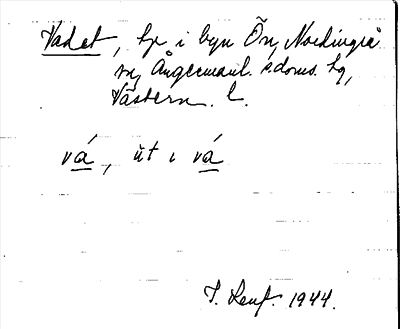 Vadet, hp i byn Ön, Nordingrå
sn, Ångermanl. s. doms. hg,
Västern. l.
vá, ùt ı vá
J. Leuf. 1944.